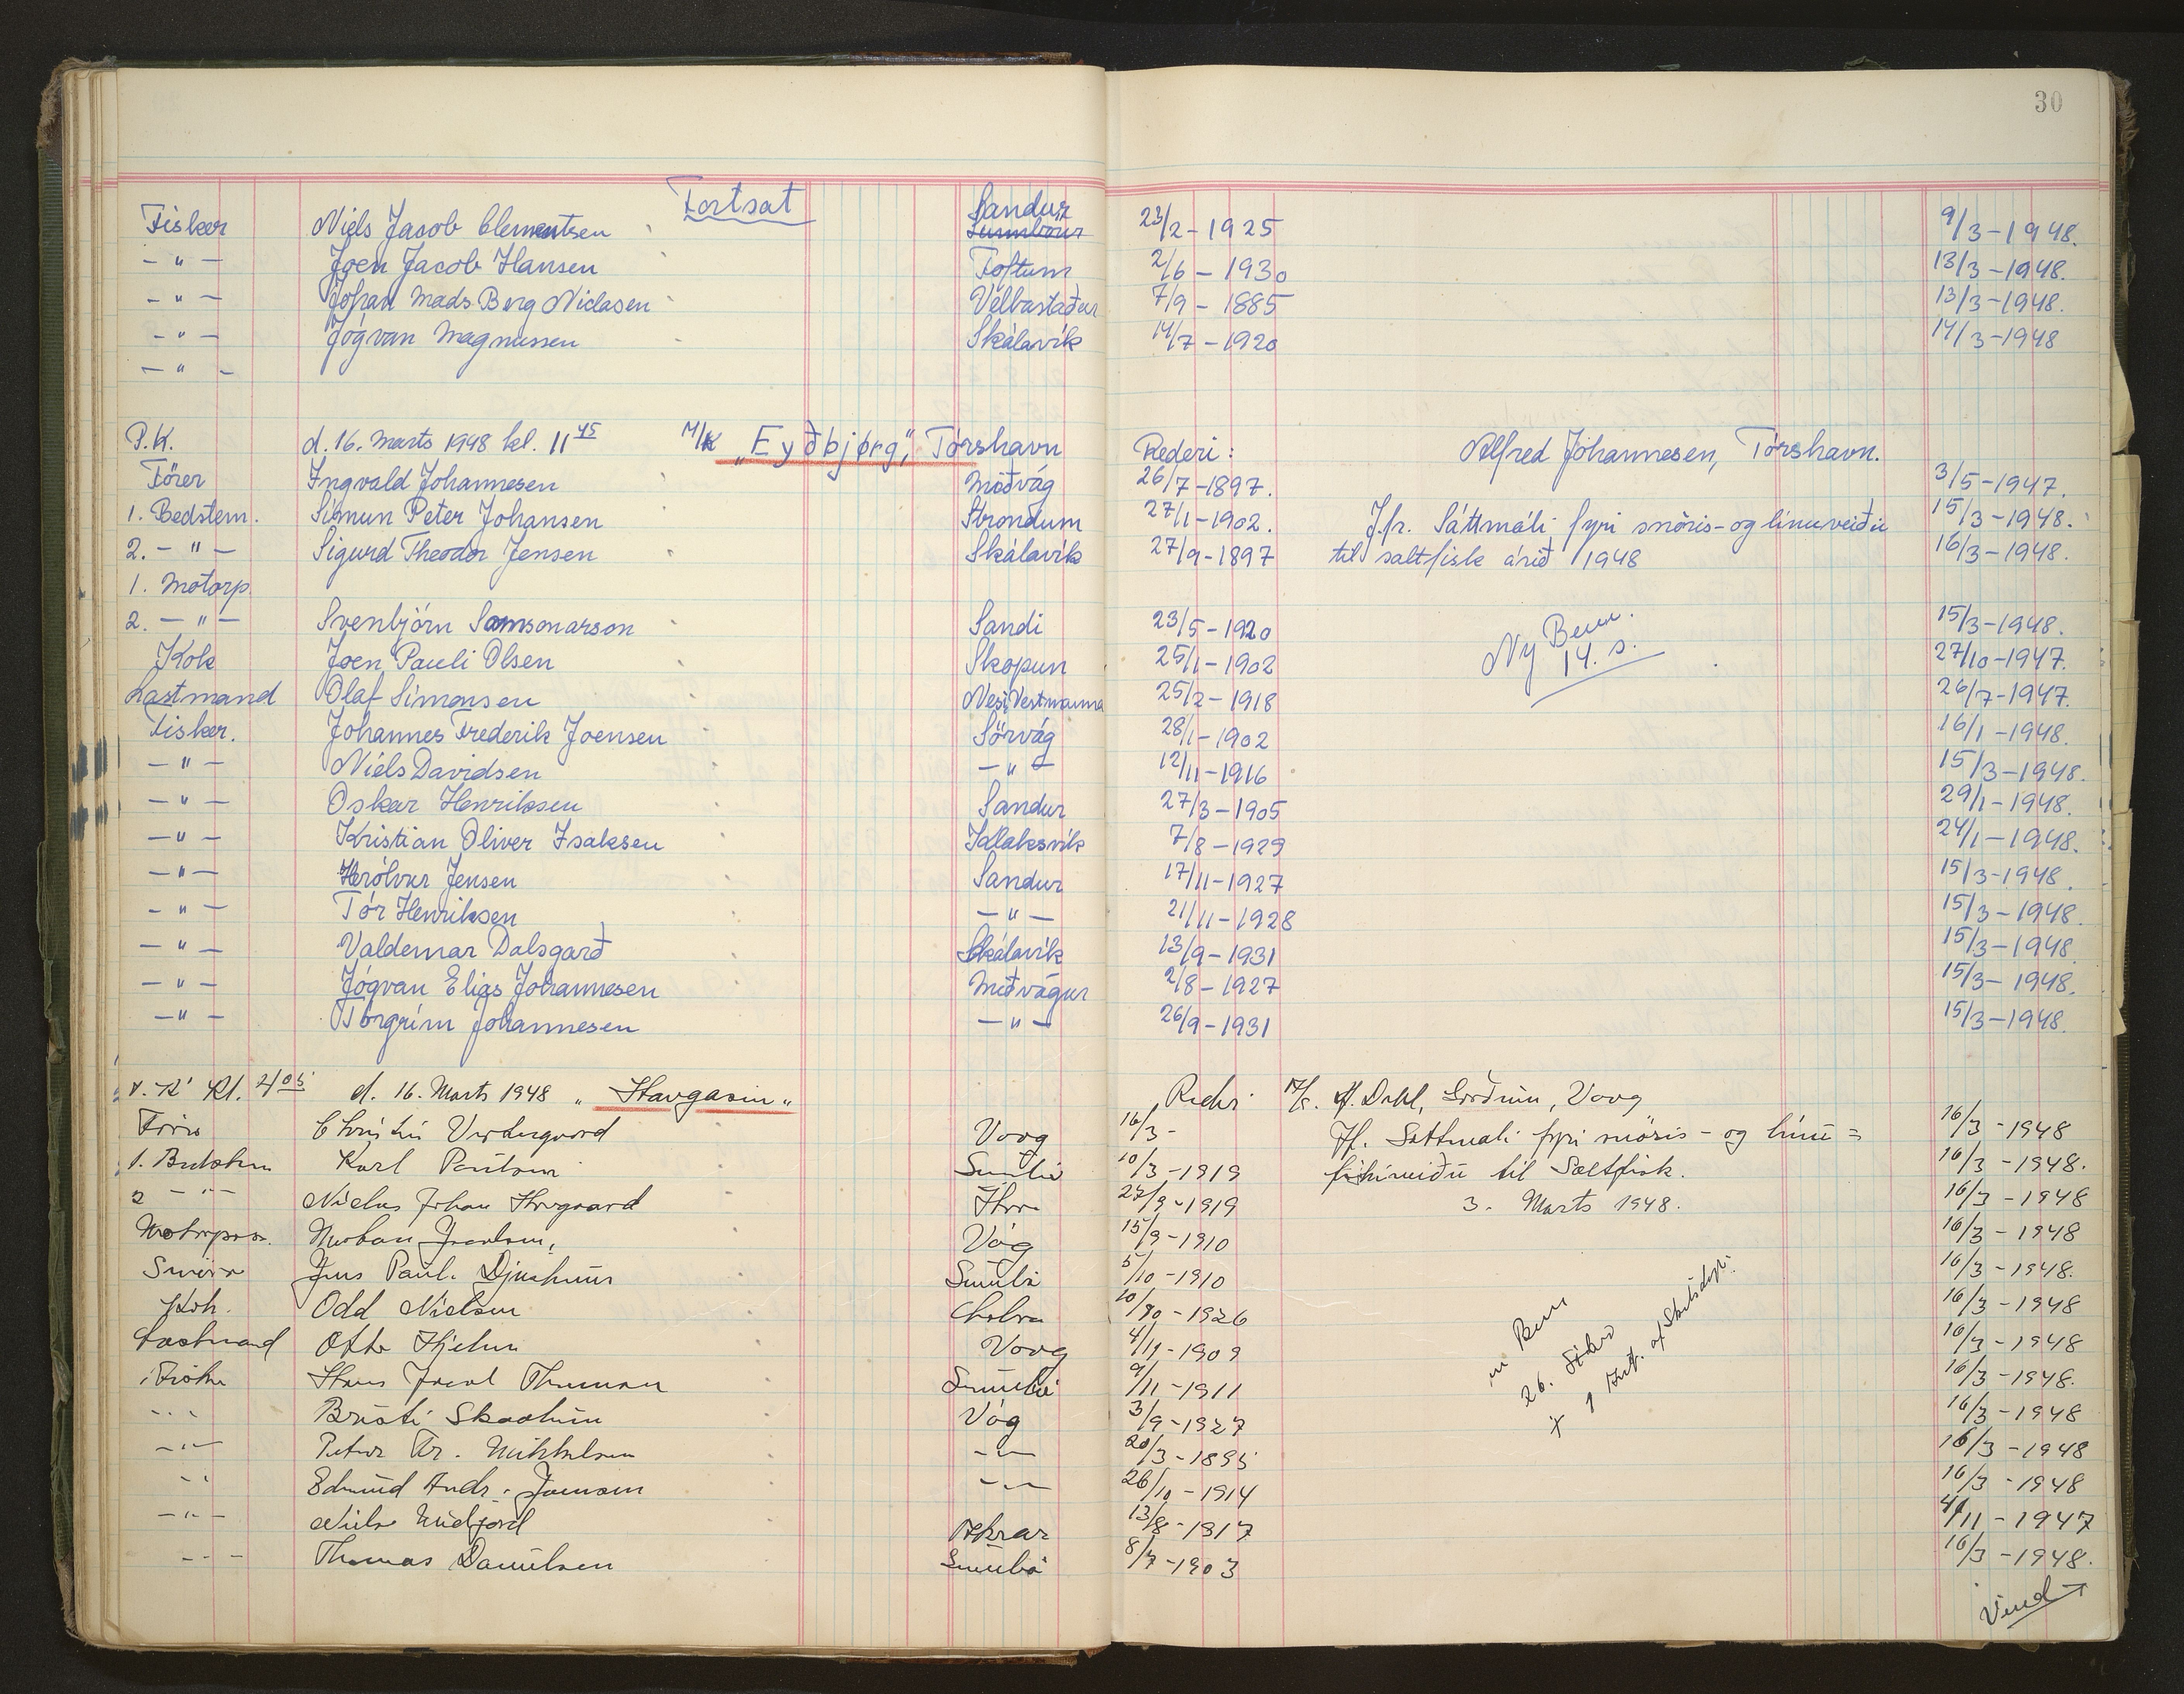 30
Fortsat
Fisker Niels Jacob Clementsen Sandur 23/2-1925 9/3-1948.
-"- Joen Jacob Hansen Toftum 2/6-1930 13/3-1948.
-"- Johan Mads Berg Niclasen Velbastaður 7/9-1885 13/3-1948.
-"- Jógvan Magnussen Skálavík 14/7-1920 14/3-1948
-"-
P.K. d. 16. Marts 1948 kl. 11 45 M/K "Eyðbjørg", Tórshavn Rederi: Alfred Johannesen, Tórshavn.
Förer Ingvald Johannesen Miðvág 26/7-1897. 3/5-1947.
1. Bedstem. Simun Peter Johansen Strondum 27/1-1902. J.fr. Sáttmáli fyri snöris- og línuveiðu 15/3-1948.
2. -"- Sigurd Theodor Jensen Skálavík 27/9-1897 til saltfisk árið 1948 16/3-1948.
1. Motorp.
2. -"- Svenbjörn Samsonarson Sandi 23/5-1920 15/3-1948.
Kok Joen Pauli Olsen Skopun 25/1-1902 27/10-1947.
Ny Bem. 14. s.
Lastmand Olaf Simonsen Nesi, Vestmanna 25/2-1918 26/7-1947.
Fisker. Johannes Frederik Joensen Sörvág 28/1-1902 16/1-1948.
-"- Niels Davidsen -"- 12/11-1916 15/3-1948.
-"- Oskar Henriksen Sandur 27/3-1905 29/1-1948.
-"- Kristian Oliver Isaksen Klaksvík 7/8-1929 24/1-1948.
-"- Hrólvur Jensen Sandur 17/11-1927 15/3-1948.
-"- Tór Henriksen -"- 21/11-1928 15/3-1948.
-"- Valdemar Dalsgarð Skálavík 13/9-1931 15/3-1948
-"- Jógvan Elias Johannesen Miðvágur 2/8-1927 15/3-1948.
-"- Torgrím Johannesen -"- 26/9-1931 15/3-1948.
Kl. d. 16. Marts 1948 "Havgasin" M/s. Dahl, Vaag
Vaag 16/3- Jf. Sattmali fyri snöris- og línu= 16/3-1948
1. Karl Poulsen 10/3-1919 til Saltfisk. 16/3-1948.
2 -"- Niclas Johan 27/9-1919 3. Marts 1948. 16/3-1948
Motorpass. Vág 15/9-1910 16/3-1948
Jens Paul. Djurhuus Sumbø 5/10-1910 16/3-1948.
Kok. Odd Nielsen -1926 16/3-1948
Lastmand Otto Vaag -1909 16/3-1948
Fisker Hans Jacob Thomsen Sumbø /11-1911 16/3-1948.
-"- Vág 3/9-1927 16/3-1948
-"- Peter Fr. Mikkelsen -"- 20/3-1895 16/3-1948
-"- Edmund Andr. Joensen -"- 26/10-1914 16/3-1948
-"- Niels Midjord Akrar 13/8-1917 4/11-1947
-"- Thomas Danielsen Sumbø 8/7-1903 16/3-1948.
Vend →